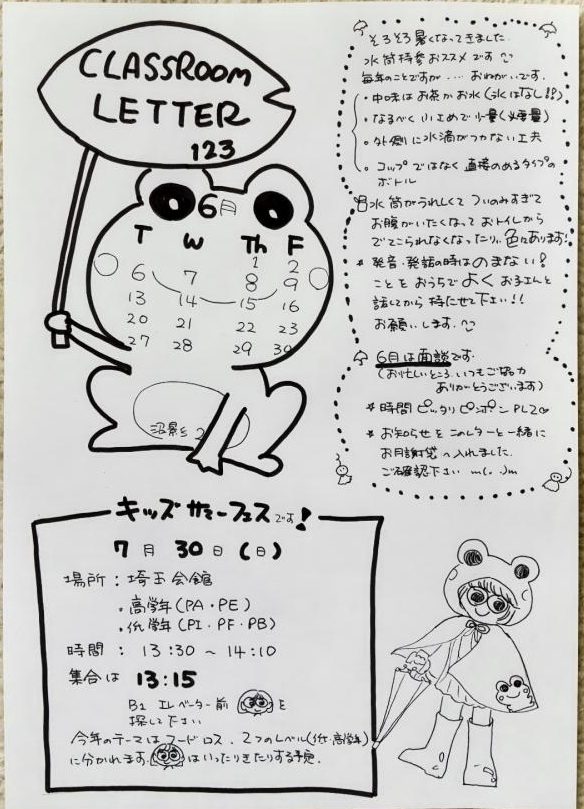 CLASSROOM
LETTER
123
6月
T W Th F
1 2
6 7 8 9
13 14 15 16
20 21 22 23
27 28 29 30
沼影 2
そろそろ暑くなってきました
水筒持参おススメです
毎年のことですが…おねがいです.
・中味はお茶かお水(氷はなし!!)
・なるべく小さめで少量(必要量)
・外側に水滴がつかない工夫
・コップではなく直接のめるタイプの
ボトル
水筒がうれしくてついのみすぎて
お腹がいたくなっておトイレから
でてこられなくなったり、色々あります!
★発音・発話の時はのまない!
ことをおうちでよくお子さんと
話してから持たせて下さい!!
お願いします.
6月は面談です.
(お忙しいところ、いつもご協力
ありがとうございます)
★時間ピッタリピンポンPLZ♡
★お知らせをこのレターと一緒に
お月謝袋へ入れました.
ご確認下さい m(..)m
キッズサマーフェスです!
7月30日(日)
場所:埼玉会館
・高学年(PA・PE)
・低学年(PI・PF・PB)
時間:13:30〜14:10
集合は 13:15
B1 エレベーター前 を
探して下さい
今年のテーマはフードロス.2つのレベル(低・高学年)
に分かれます. はいったりきたりする予定.